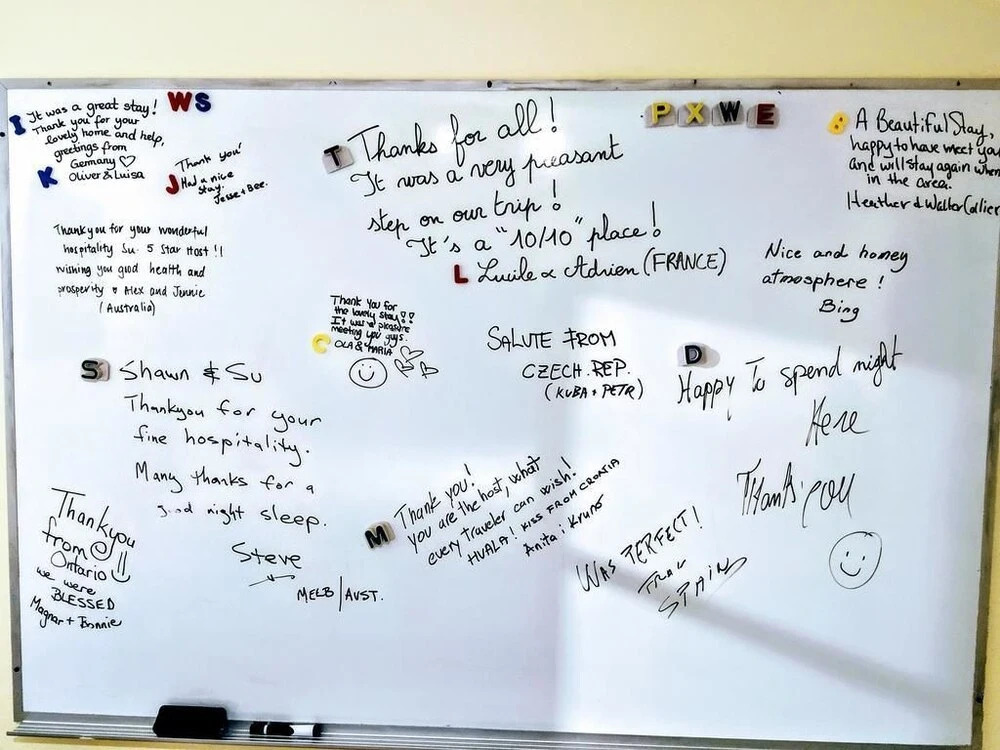 I
It was a great stay!
Thank you for your
lovely home and help,
greetings from
Germany ♡
Oliver & Luisa
K
WS
J
Thank you!
Had a nice
stay.
Jesse + Bee.
T
Thanks for all!
It was a very pleasant
step on our trip!
It's a "10/10" place!
L
Lucile & Adrien (FRANCE)
PXWE
B
A Beautiful Stay,
happy to have meet you
and will stay again when
in the area.
Heather & Walter Collier
Thank you for your wonderful
hospitality Su. 5 Star Host !!
wishing you good health and
prosperity Alex and Jennie
(Australia)
C
Thank you for
the lovely stay!!
It was a pleasure
meeting you guys.
OLA & MARIA
Nice and homey
atmosphere !
Bing
SALUTE FROM
CZECH. REP.
(KUBA + PETR)
D
Happy To spend night
Here
Thank you
S
Shawn & Su
Thankyou for your
fine hospitality.
Many thanks for a
good night sleep.
Steve
MELB/AUST.
Thankyou
from
Ontario
we were
BLESSED
Magnar + Bonnie
M
Thank you!
you are the host, what
every traveler can wish!
HVALA! KISS FROM CROATIA
Anita i Kruno
WAS PERFECT!
SPAIN